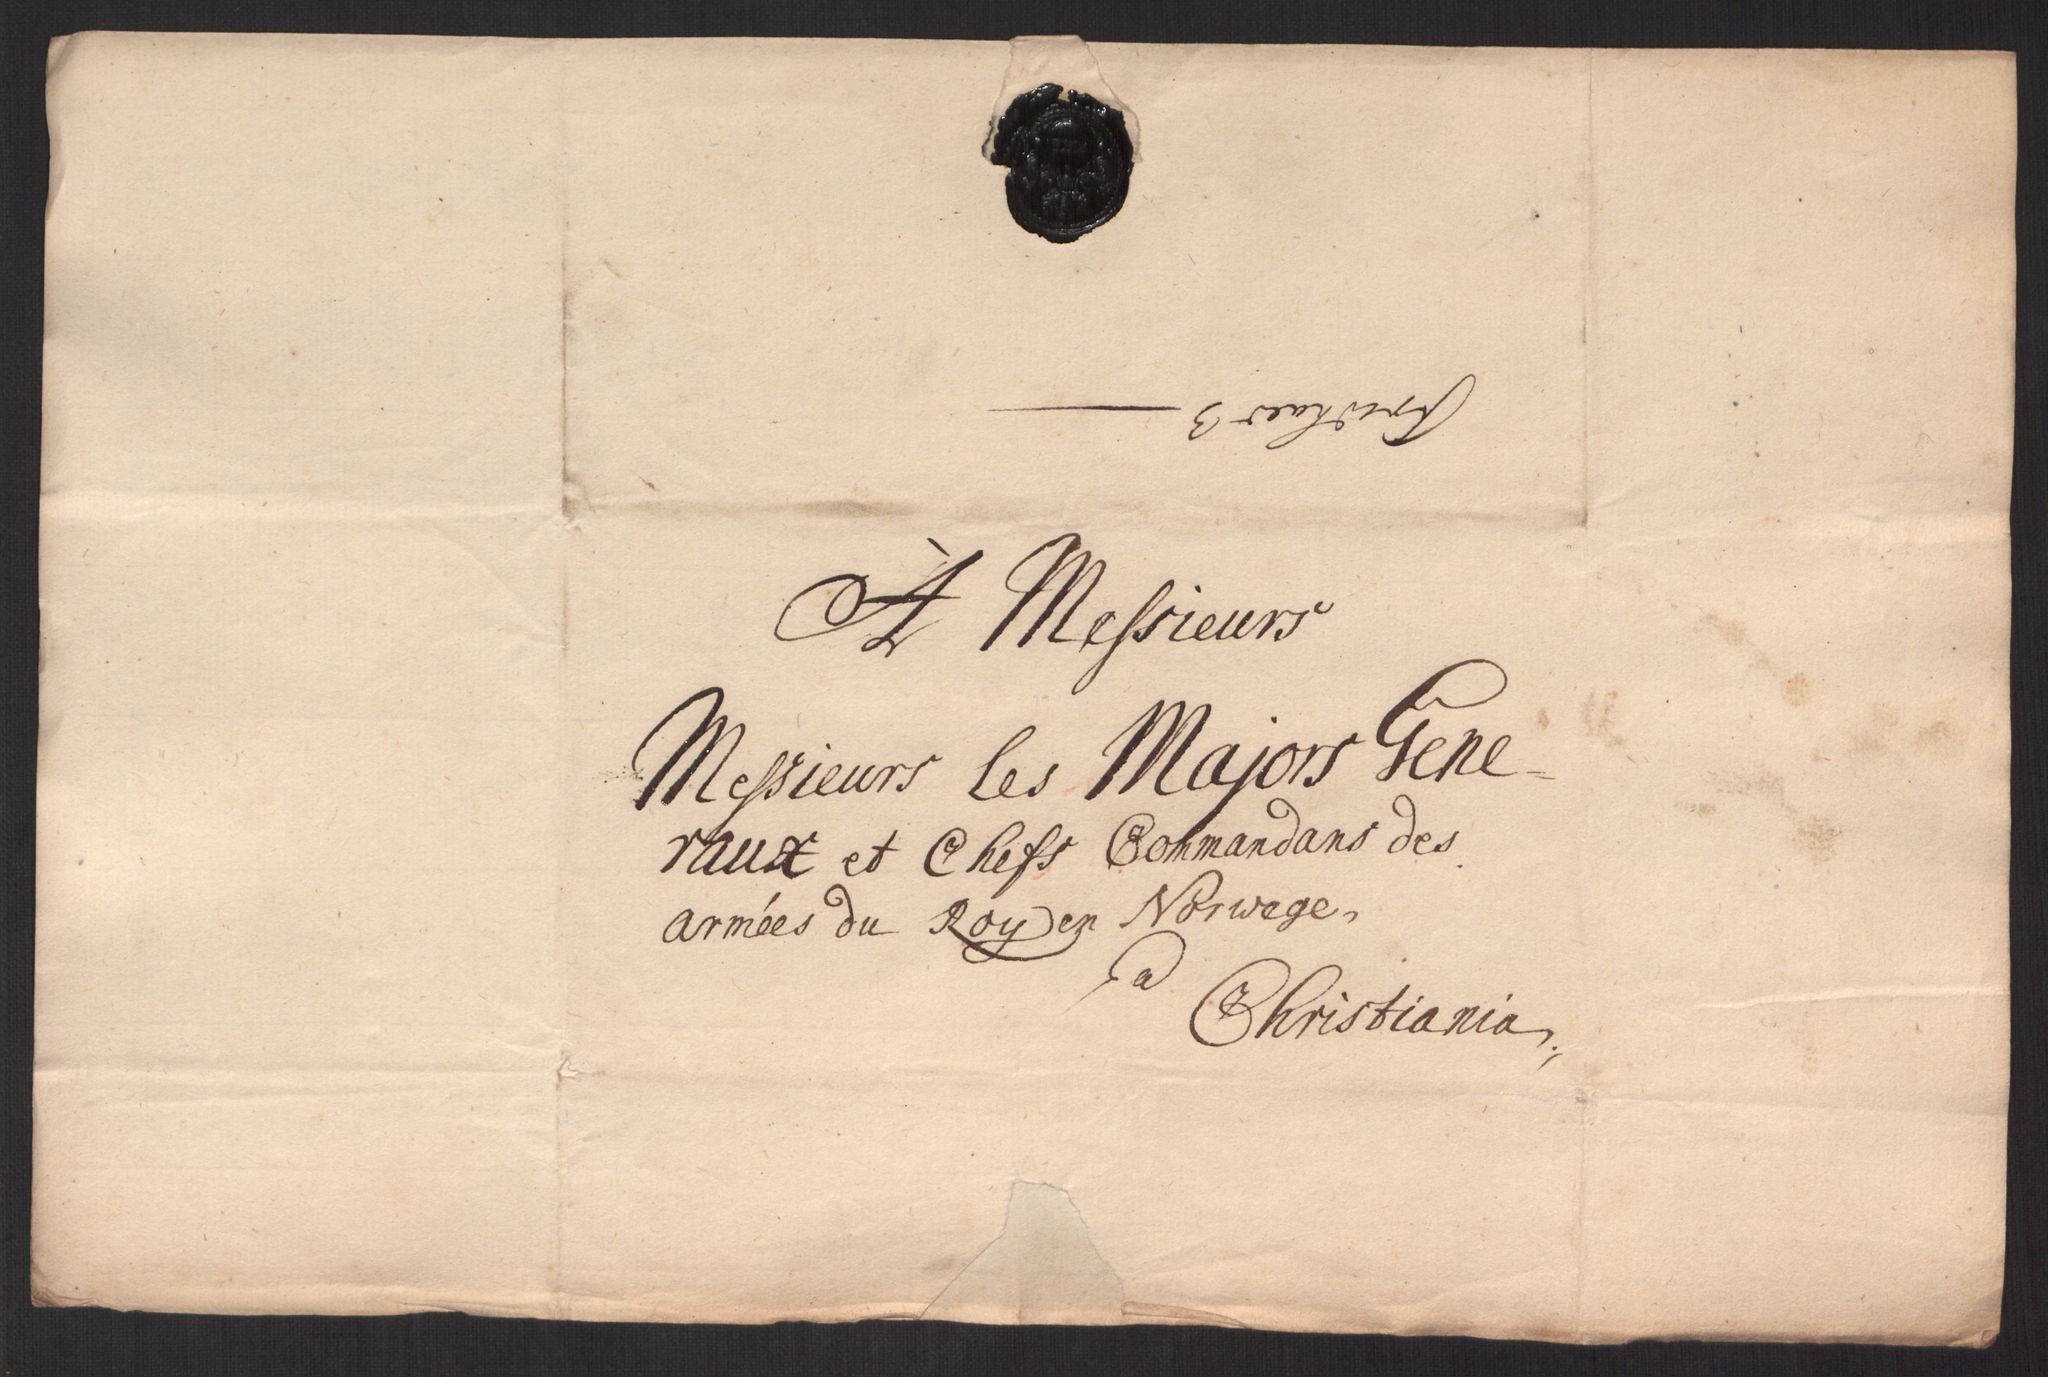 À Messieurs
Messieurs les Majors Gene-
raux et Chefs Commandans des
armées du Roy en Norwege,
a
Christiania,